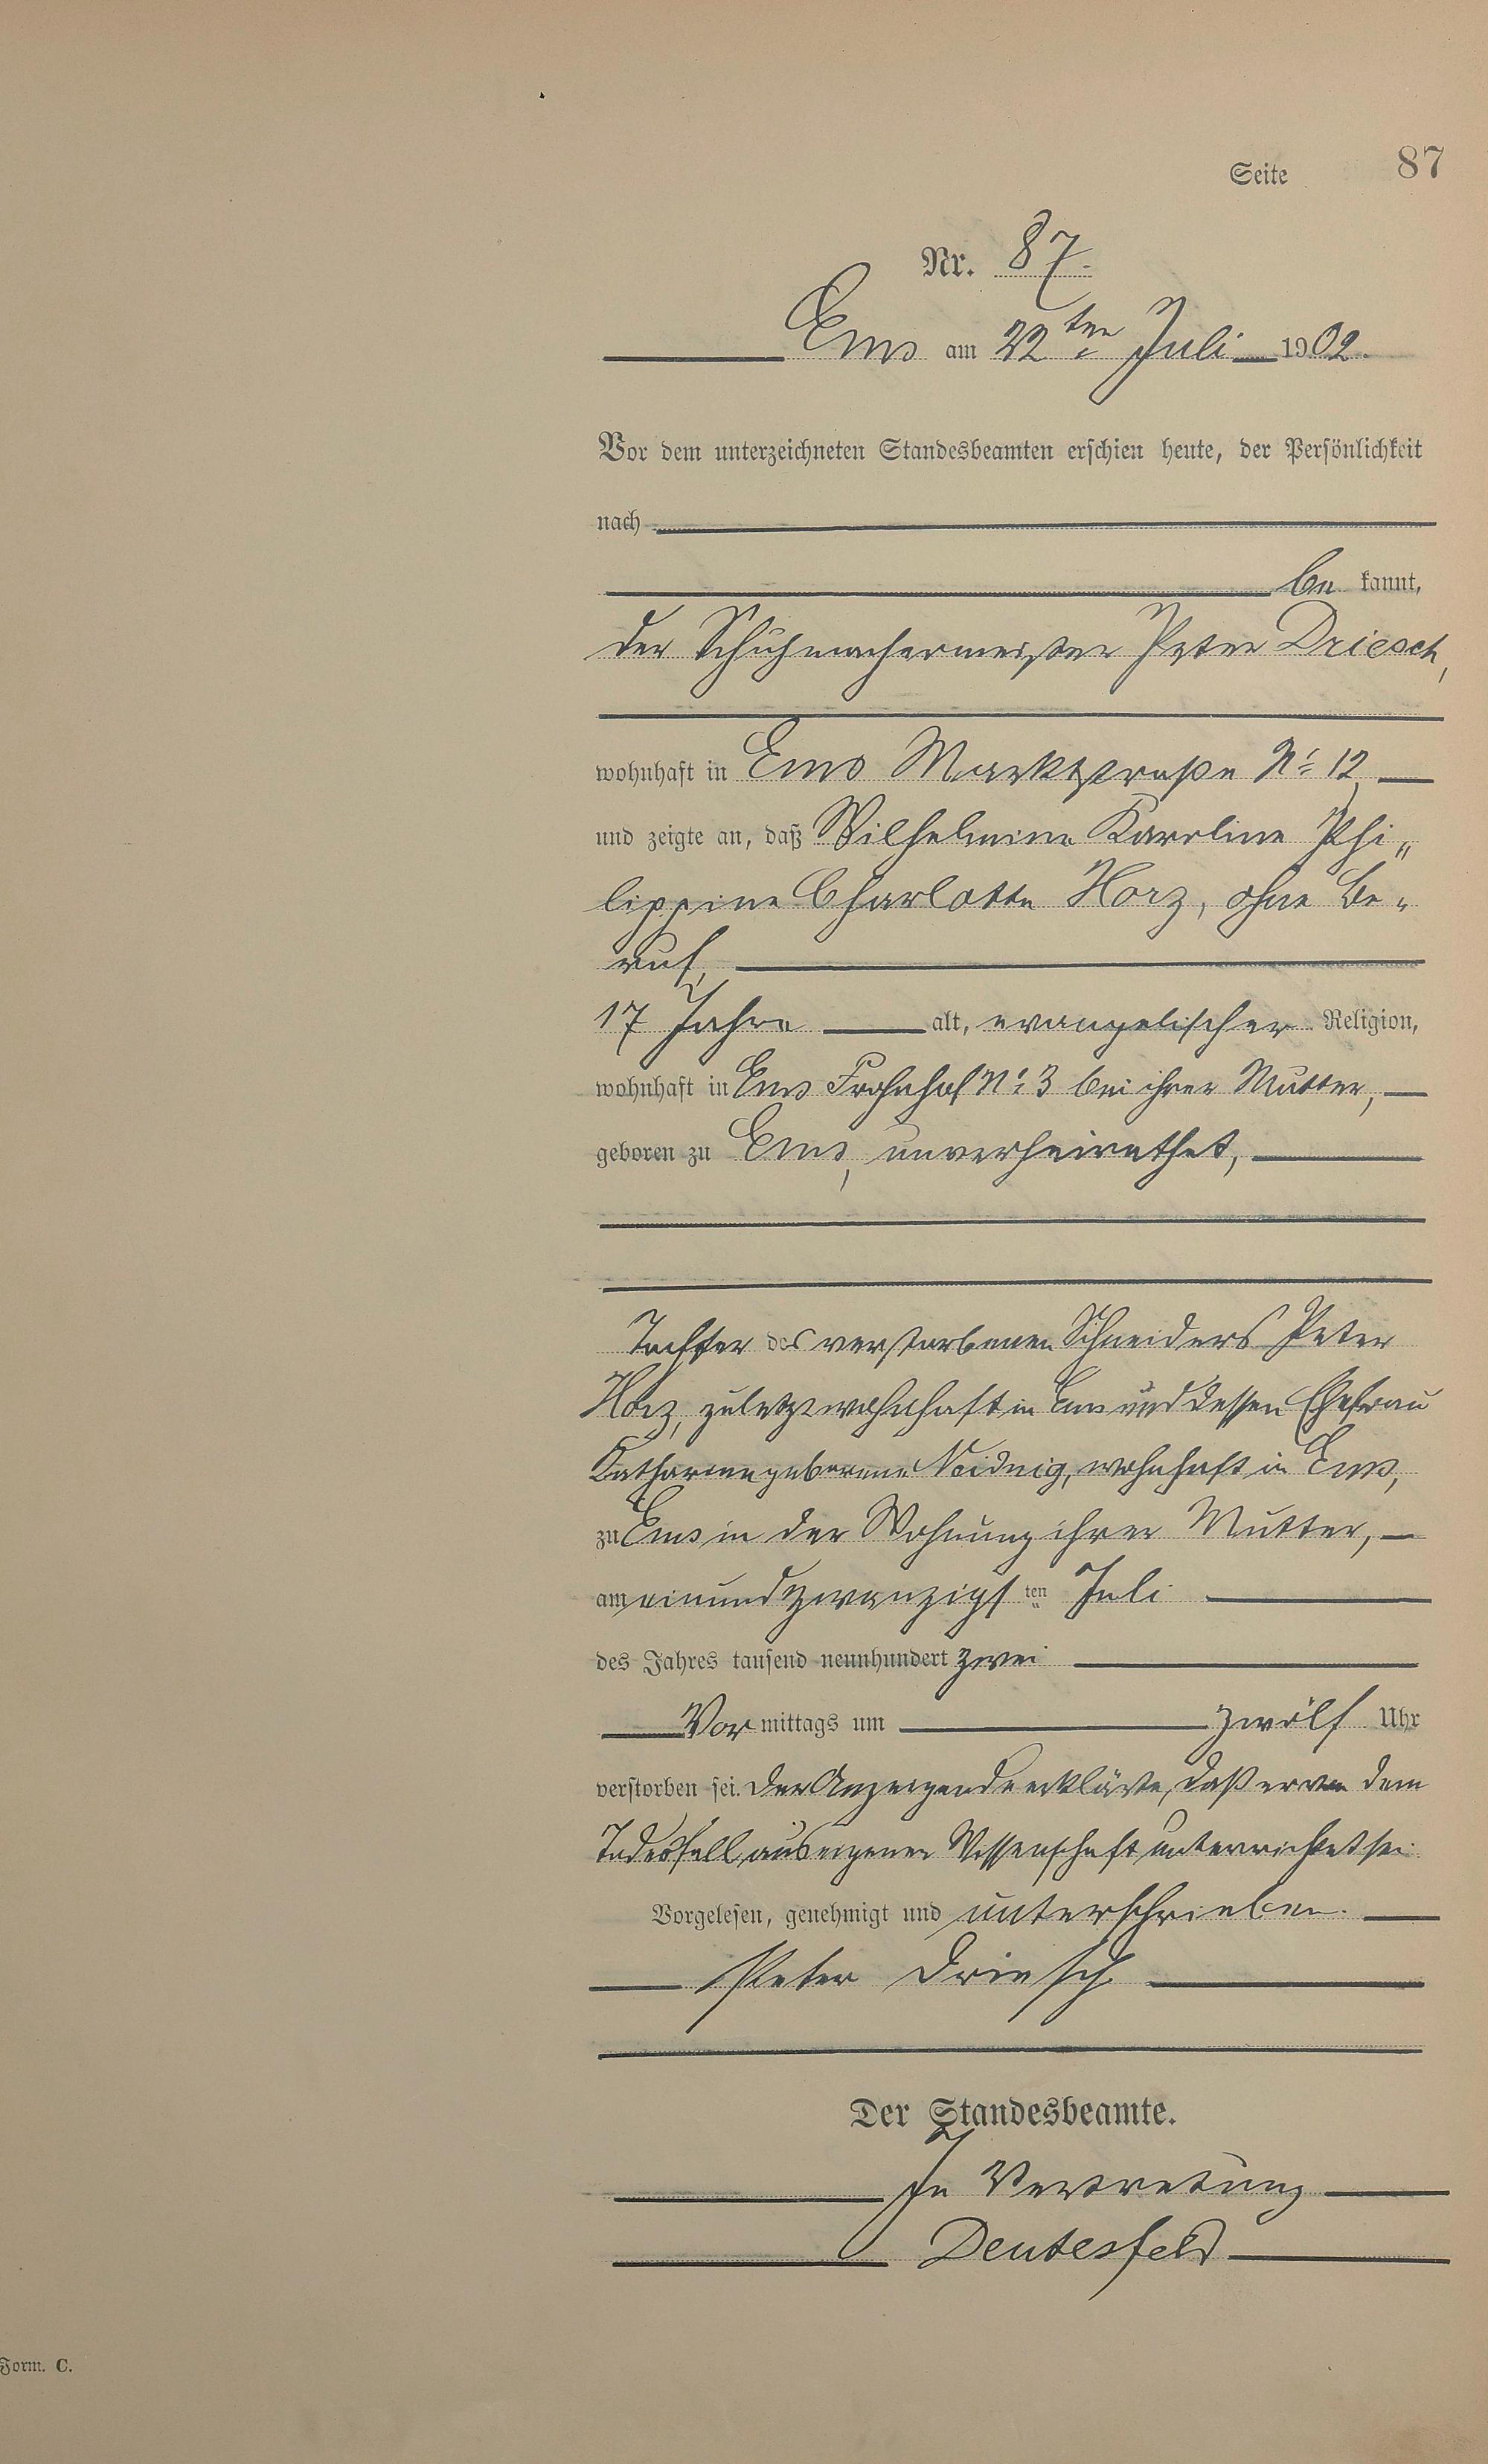 Seite 87
Nr. 87.
Ems am 22ten Juli 1902.
Vor dem unterzeichneten Standesbeamten erschien heute, der Persönlichkeit
nach
be kannt,
der Schuhmachermeister Peter Driesch,
wohnhaft in Ems Marktstraße No 12,
und zeigte an, daß Wilhelmine Karoline Phi„
lippine Charlotte Horz, ohne Be„
ruf,
17 Jahre alt, evangelischer Religion,
wohnhaft in Ems Fronhof No 3 bei ihrer Mutter,
geboren zu Ems, unverheirathet,
Tochter des verstorbenen Schneiders Peter
Horz, zuletzt wohnhaft in Ems und dessen Ehefrau
Katharine geborene Neidnig, wohnhaft in Ems,
zu Ems in der Wohnung ihrer Mutter,
am einundzwanzigsten Juli
des Jahres tausend neunhundert zwei
Vormittags um zwölf Uhr
verstorben sei. Der Anzeigende erklärte, daß er von dem
Todesfall aus eigener Wissenschaft unterrichtet sei
Vorgelesen, genehmigt und unterschrieben.
Peter Driesch
Der Standesbeamte.
In Vertretung
Deutesfeld
Form. C.